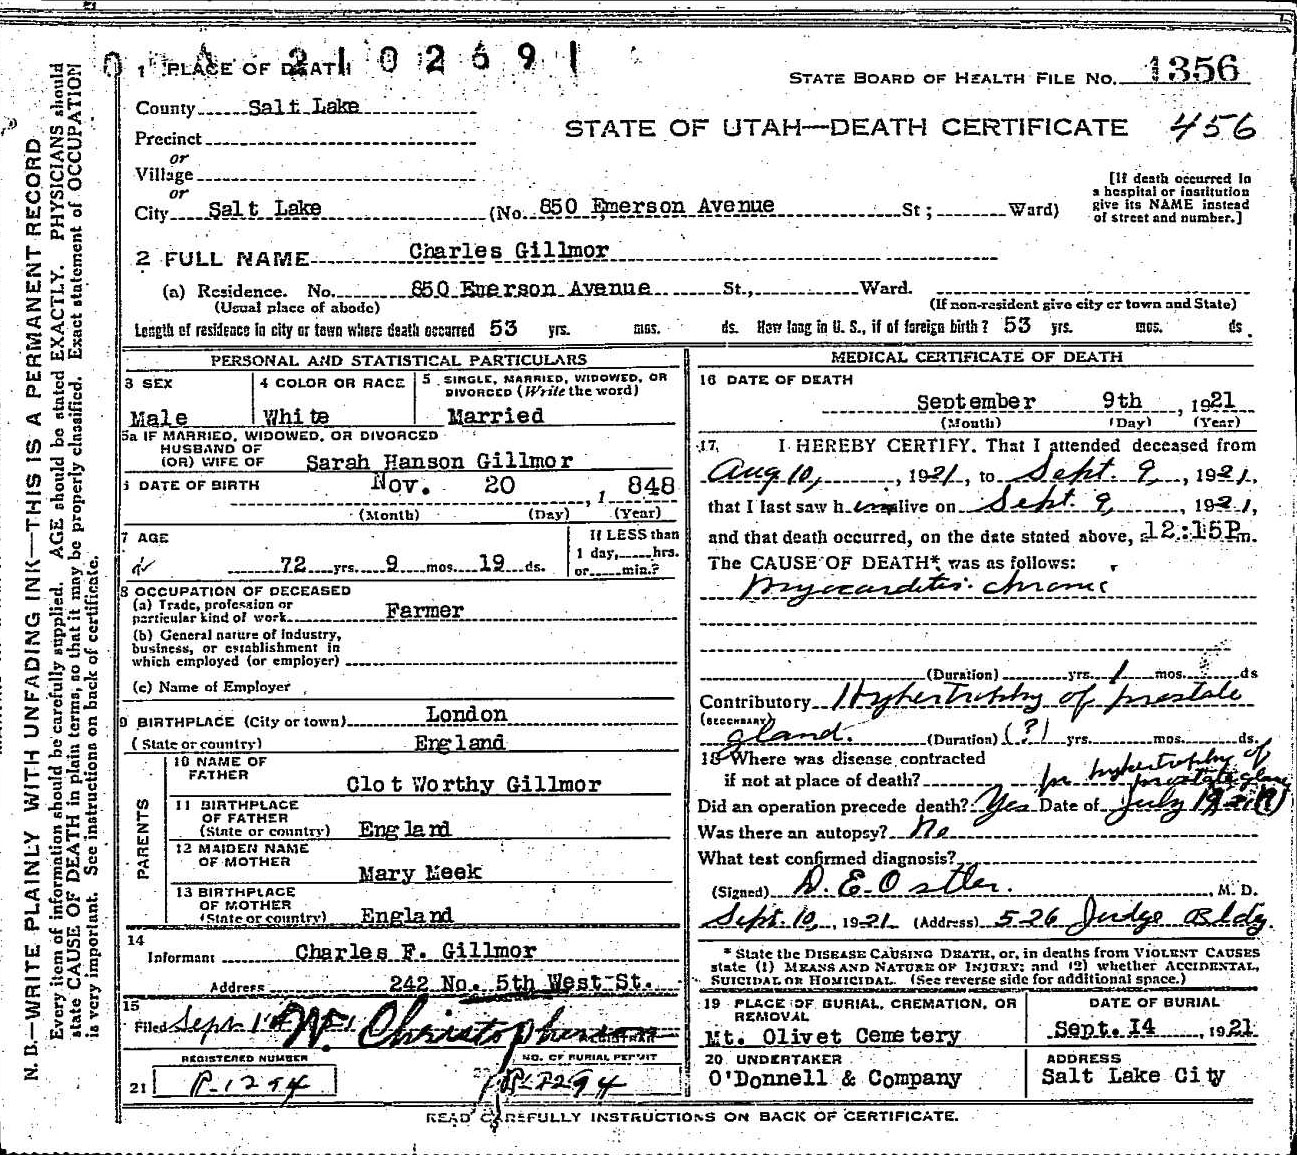 2102691
1 PLACE OF DEATH
STATE BOARD OF HEALTH FILE NO. 1356
County Salt Lake
STATE OF UTAH—DEATH CERTIFICATE 456
Precinct
or
Village
or
City Salt Lake (No. 850 Emerson Avenue St; Ward)
[If death occurred in
a hospital or institution
give its NAME instead
of street and number.]
2 FULL NAME Charles Gillmor
(a) Residence. No. 850 Emerson Avenue St., Ward.
(Usual place of abode) (If non-resident give city or town and State)
Length of residence in city or town where death occurred 53 yrs. mos. ds. How long in U. S., if of foreign birth? 53 yrs. mos. ds.
PERSONAL AND STATISTICAL PARTICULARS
3 SEX
Male
4 COLOR OR RACE
White
5 SINGLE, MARRIED, WIDOWED, OR
DIVORCED (Write the word)
Married
5a IF MARRIED, WIDOWED, OR DIVORCED
HUSBAND OF
(OR) WIFE OF Sarah Hanson Gillmor
6 DATE OF BIRTH Nov. 20, 1848
(Month) (Day) (Year)
7 AGE
72 yrs. 9 mos. 19 ds.
If LESS than
1 day, hrs.
or min.?
8 OCCUPATION OF DECEASED
(a) Trade, profession or
particular kind of work Farmer
(b) General nature of industry,
business, or establishment in
which employed (or employer)
(c) Name of Employer
9 BIRTHPLACE (City or town) London
(State or country) England
PARENTS
10 NAME OF
FATHER
Clot Worthy Gillmor
11 BIRTHPLACE
OF FATHER
(State or country) England
12 MAIDEN NAME
OF MOTHER
Mary Meek
13 BIRTHPLACE
OF MOTHER
(State or country) England
14
Informant Charles F. Gillmor
Address 242 No. 5th West St.
15
Filed Sept W. Christopherson
REGISTRAR
REGISTERED NUMBER
21 P-1294
NO. OF BURIAL PERMIT
P-1294
MEDICAL CERTIFICATE OF DEATH
16 DATE OF DEATH
September 9th, 1921
(Month) (Day) (Year)
17. I HEREBY CERTIFY. That I attended deceased from
Aug 10, 1921, to Sept. 9, 1921,
that I last saw him alive on Sept. 9, 1921,
and that death occurred, on the date stated above, 12:15P.m.
The CAUSE OF DEATH* was as follows:
Myocarditis chronic
(Duration) yrs. 1 mos. ds
Contributory Hypertrophy of prostate
(SECONDARY)
gland. (Duration) (?) yrs. mos. ds.
18 Where was disease contracted
if not at place of death?
for hypertrophy of
prostate gland
Did an operation precede death? Yes Date of July 1921(?)
Was there an autopsy? No
What test confirmed diagnosis?
(Signed) D. E. Ostler. M. D.
Sept. 10, 1921 (Address) 526 Judge Bldg.
* State the DISEASE CAUSING DEATH, or, in deaths from VIOLENT CAUSES
state (1) MEANS AND NATURE OF INJURY; and (2) whether ACCIDENTAL,
SUICIDAL OR HOMICIDAL. (See reverse side for additional space.)
19 PLACE OF BURIAL, CREMATION, OR
REMOVAL
Mt. Olivet Cemetery
DATE OF BURIAL
Sept. 14, 1921
20 UNDERTAKER
O'Donnell & Company
ADDRESS
Salt Lake City
READ CAREFULLY INSTRUCTIONS ON BACK OF CERTIFICATE.
N. B.—WRITE PLAINLY WITH UNFADING INK—THIS IS A PERMANENT RECORD
Every item of information should be carefully supplied. AGE should be stated EXACTLY. PHYSICIANS should
state CAUSE OF DEATH in plain terms, so that it may be properly classified. Exact statement of OCCUPATION
is very important. See instructions on back of certificate.